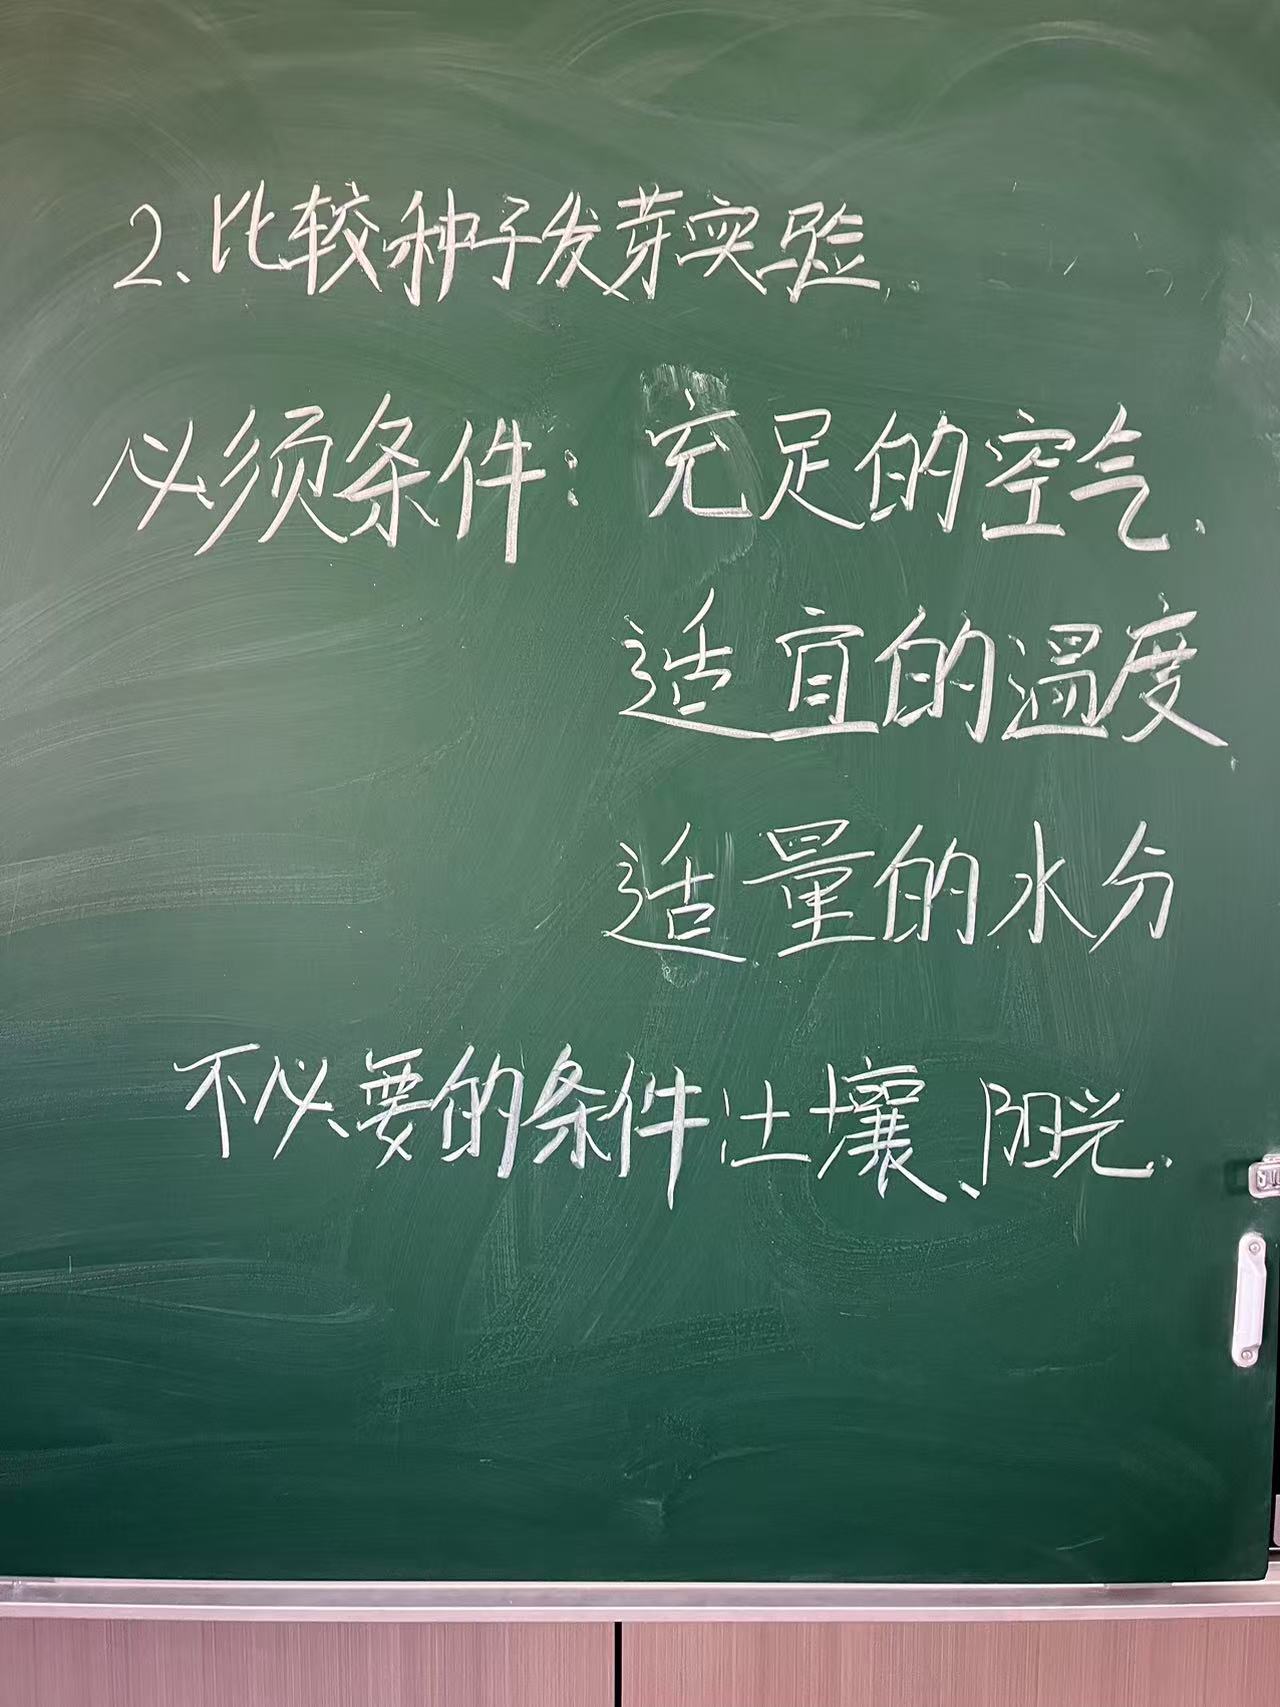 2、比较种子发芽实验
必须条件：充足的空气、
适宜的温度、
适量的水分
不必要的条件：土壤、阳光.